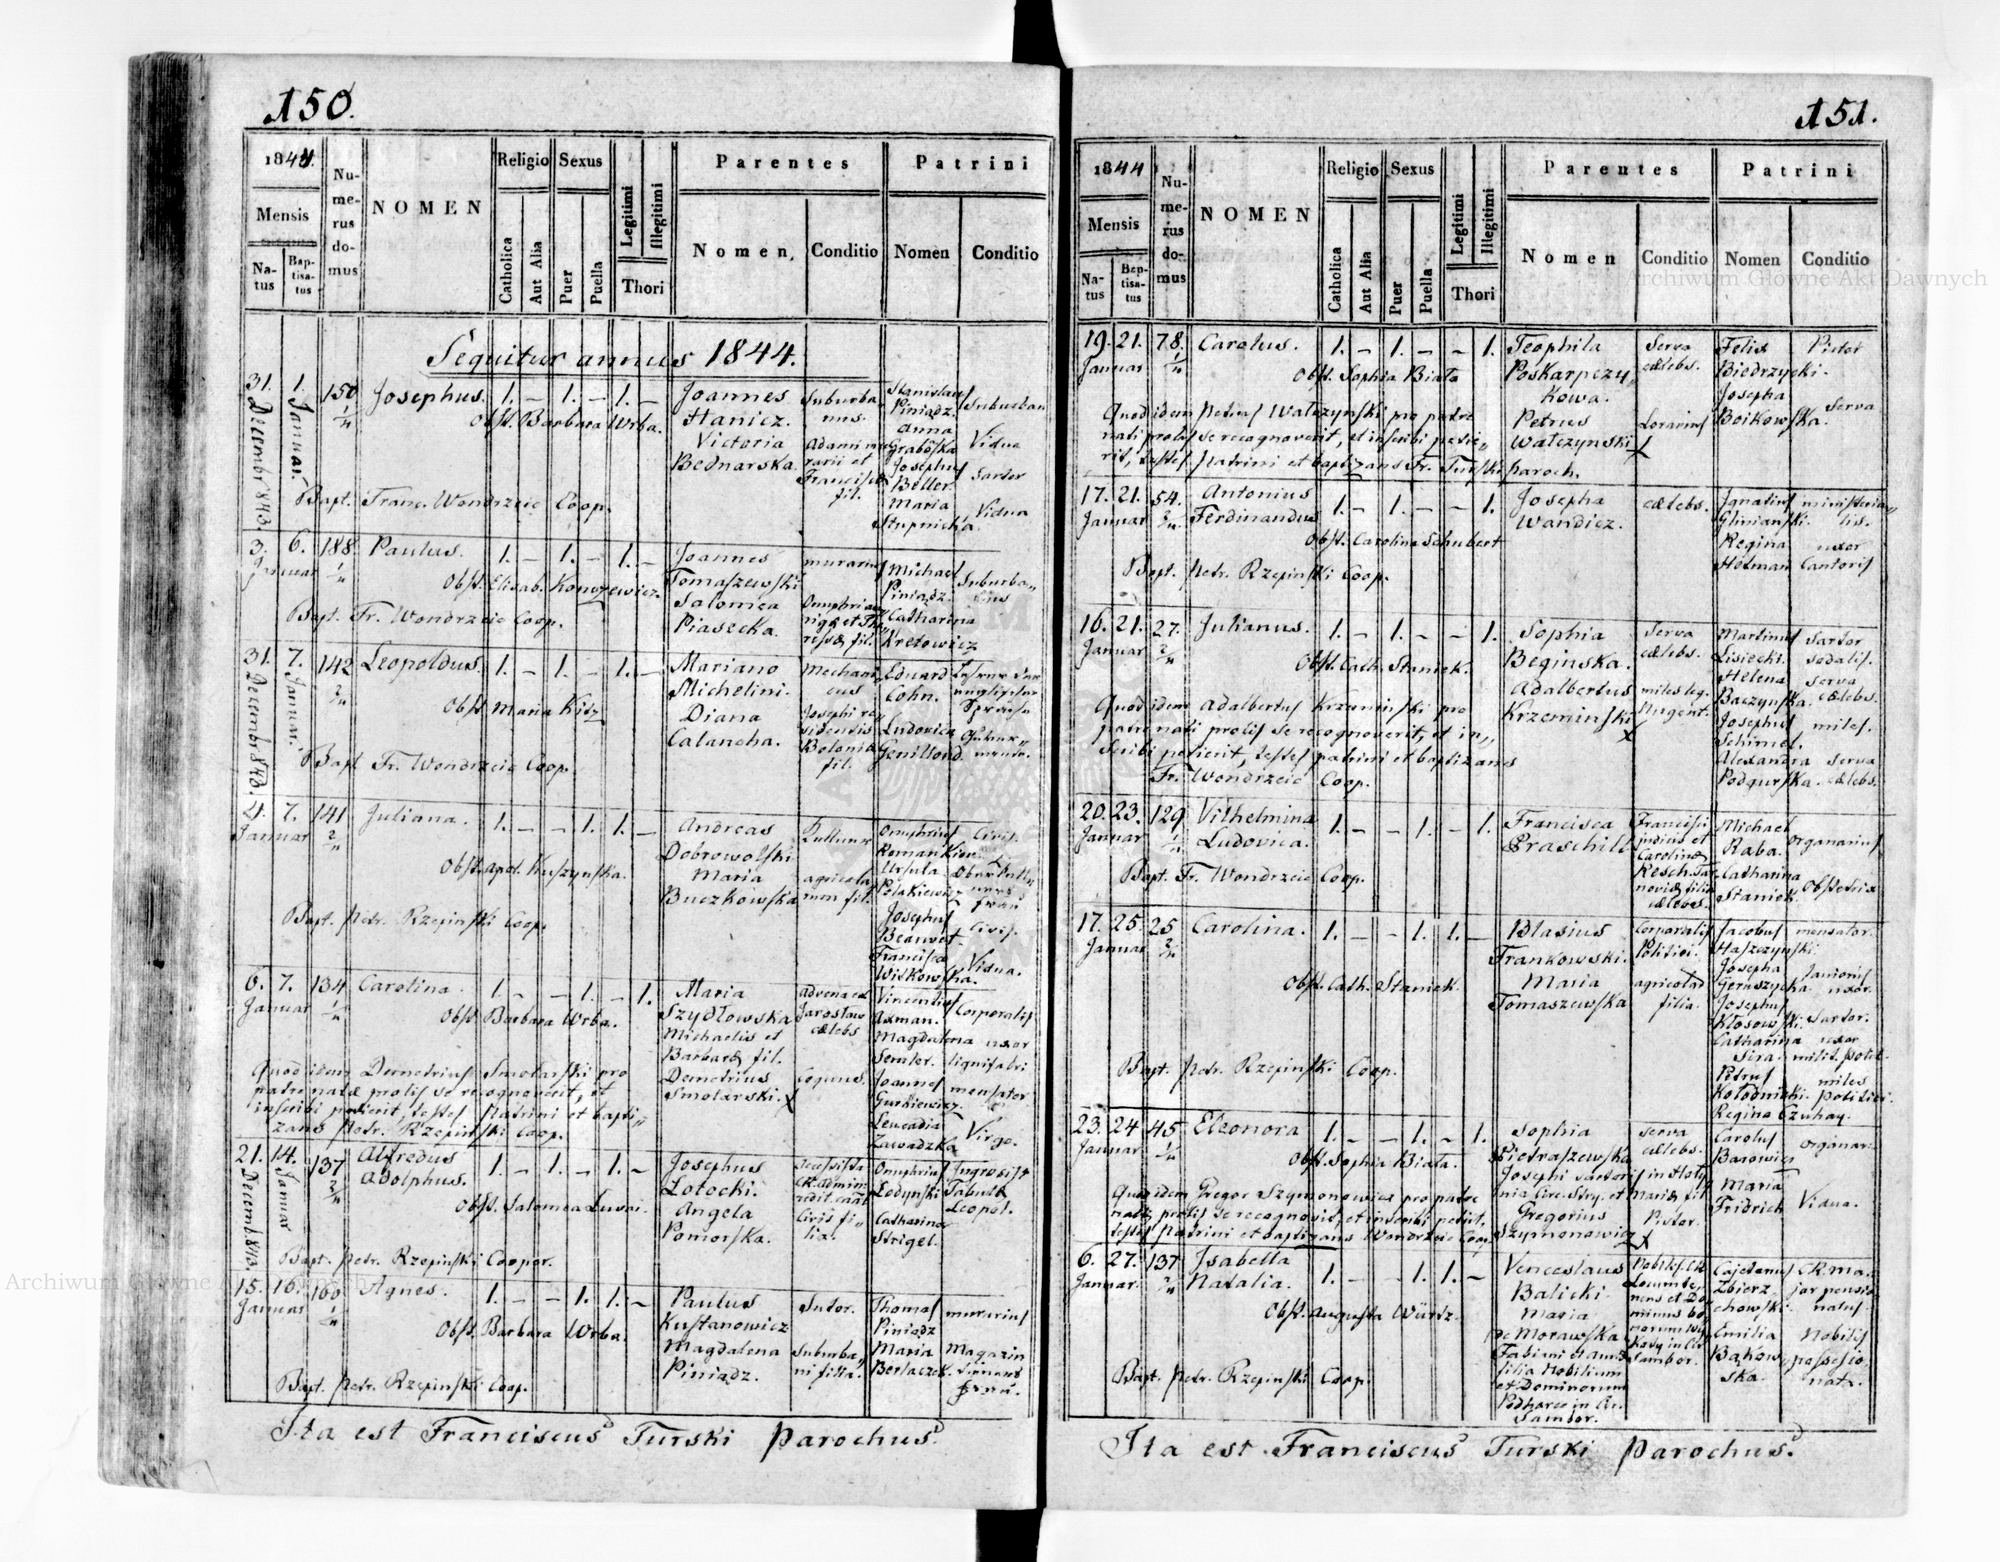 150.
1844.
Mensis
Na-
tus
Bap-
tisa-
tus
Nu-
me-
rus
do-
mus
NOMEN
Religio
Catholica
Aut Alia
Sexus
Puer
Puella
Legitimi
Illegitimi
Thori
Parentes
Nomen,
Conditio
Patrini
Nomen
Conditio
Sequitur annus 1844.
31. Decembr 843.
1. Januar.
150
1/4
Josephus. 1. – 1. – 1. –
Obst. Barbara Wrba.
Bapt. Franc. Wondrzeic Coop.
Joannes
Hanicz.
Victoria
Bednarska.
Suburba
nus.
Adami mu
rarii et
Francisca
fil.
Stanislaus
Piniądz.
Anna
Grabóska
Josephus
Beller.
Maria
Stupnicka.
Suburban
Vidua
Sartor
Vidua
3. 6. 188
Januar
1/4
Paulus. 1. – 1. – 1. –
Obst. Elisab. Konczewicz.
Bapt. Fr. Wondrzeic Coop.
Joannes
Tomaszewski
Salomea
Piasecka.
murarius
Michael
Piniądz.
Catharina
Kretowicz
Suburba„
nus
31. Decembr 843.
7. Januar.
142
2/4
Leopoldus. 1. – 1. – 1. –
Obst. Maria Kitz
Bapt. Fr. Wondrzeic Coop.
Mariano
Michelini.
Diana
Calancha.
Mechani
cus
Josephi re„
sidentis
Bolonia
fil.
Eduard
Cohn.
Ludovica
Gemillond
4. 7. 141
Januar
2/4
Juliana. 1. – – 1. 1. –
Obst. Apol. Kuszynska.
Bapt. Petr. Rzepinski Coop.
Andreas
Dobrowolski
Maria
Buczkowska
agricola
mon fil.
Onuphrius
Roman
Ursula
Polakiewicz
Josephus
Beauvet.
Francisca
Witkowska.
Civis.
Civis.
Vidua.
6. 7. 134
Januar
1/4
Carolina. 1. – – 1. – 1.
Obst. Barbara Wrba.
Quod idem Demetrius Smolarski pro
patre natæ prolis se recognoverit, et
inscribi petierit, testes Patrini et bapti„
zans Petr. Rzepinski Coop.
Maria
Szydłowska
Michaelis et
Barbara fil.
Demetrius
Smolarski. X
advena ex
Jaroslaw
cælebs
coquus.
Vincentius
Axman.
Magdalena
Semler.
Joannes
Gurkiewicz.
Leucadia
Zawadzka
Corporalis
uxor
lignifabri
mensator
Virgo.
21. Decemb. 843.
14. Januar
137
2/4
Alfredus
Adolphus. 1. – 1. – 1. –
Obst. Salomea Luwai.
Bapt. Petr. Rzepinski Cooper.
Josephus
Lotocki.
Angela
Pomorska.
Civis fi„
lia.
Onuphrius
Ledynski
Catharina
Strigel.
Ingrosist
Tabulæ
Leopol.
15. 16. 160
Januar
1/4
Agnes. 1. – – 1. 1. –
Obst. Barbara Wrba.
Bapt. Petr. Rzepinski Coop.
Paulus
Kustanowicz
Magdalena
Piniądz.
Sutor.
Suburba„
ni filia.
Thomas
Piniądz
Maria
Berlaczek.
murarius
Magazin
Ita est Franciscus Turski Parochus
151.
1844
Mensis
Na-
tus
Bap-
tisa-
tus
Nu-
me-
rus
do-
mus
NOMEN
Religio
Catholica
Aut Alia
Sexus
Puer
Puella
Legitimi
Illegitimi
Thori
Parentes
Nomen
Conditio
Patrini
Nomen
Conditio
19. 21. 78.
Januar
1/4
Carolus. 1. – 1. – – 1.
Obst. Sophia Biała
Quod idem Petrus Watczynski pro patre
nati prolis se recognoverit, et inscribi petie„
rit, testes Patrini et baptizans Fr. Turski Paroch.
Teophila
Poskarpczy„
kowa.
Petrus
Watczynski
X
Serva
cælebs.
Lorarius
Felix
Biedrzycki.
Josepha
Boikowska.
Pictor
Serva
17. 21. 54.
Januar
2/4
Antonius
Ferdinandus 1. – 1. – – 1.
Obst. Carolina Schubert
Bapt. Petr. Rzepinski Coop.
Josepha
Wandicz.
cælebs.
Ignatius
Glinianski.
Regina
Hetman
ministeria„
lis.
uxor
Cantoris
16. 21. 27.
Januar
2/4
Julianus. 1. – 1. – – 1.
Obst. Cath. Staniek.
Quod idem Adalbertus Krzeminski pro
patre nati prolis se recognoverit, et in„
scribi petierit, testes patrini et baptizans
Fr. Wondrzeic Coop.
Sophia
Beginska.
Adalbertus
Krzeminski
X
Serva
cælebs.
miles leg.
Nugent.
Martinus
Lisiecki.
Helena
Baczynska.
Josephus
Schimel.
Alexandra
Podgurska.
Sartor
sodalis.
Serva
cælebs.
miles.
Serva
cælebs.
20. 23. 129
Januar
1/4
Vilhelmina
Ludovica. 1. – – 1. – 1.
Bapt. Fr. Wondrzeic Coop.
Francisca
Praschill
Francisci
judicis et
Carolina
Resch
filia
cælebs.
Michael
Raba.
Catharina
Staniek.
Organarius
Obstetrix
17. 25. 25
Januar
2/4
Carolina. 1. – – 1. 1. –
Obst. Cath. Staniek.
Bapt. Petr. Rzepinski Coop.
Blasius
Frankowski.
Maria
Tomaszewska
Corporalis
Politici.
agricolæ
filia.
Jacobus
Haszczynski.
Josepha
Geruszycka
Josephus
Kłosowski.
Catharina
Sira.
Petrus
Kołodnicki.
Regina Czuhay.
mensator.
Janionis
uxor.
Sartor.
uxor
milit. polit.
miles
politici.
23. 24 45
Januar
1/4
Eleonora 1. – – 1. – 1.
Obst. Sophia Biała.
Quod idem Gregor Szymonowicz pro patre
natæ prolis se recognovit, et inscribi petiit,
testes Patrini et baptizans Wondrzeic Coop.
Sophia
Pietraszewska
Josephi sartoris in Hoty
nia Circ. Stry. et Maria fil
Gregorius
Szymonowicz
X
serva
cælebs.
Pictor.
Carolus
Barowicz
Maria
Fridrich
organar.
Vidua.
6. 27. 137
Januar.
2/4
Isabella
Natalia. 1. – – 1. 1. –
Obst. Augusta Würtz.
Bapt. Petr. Rzepinski Coop.
Venceslaus
Balicki
Maria
de Morawska
Fabiani et Annæ
filia Nobilium
et Dominorum
Podharce in Cir.
Sambor.
Nobilis
Sambor.
Cajetanus
Zbierz„
chowski.
Emilia
Bąkow„
ska.
CR. ma„
jor pensio
natus.
Nobilis
possessio
nata.
Ita est Franciscus Turski Parochus.
Archiwum Główne Akt Dawnych
Archiwum Główne Akt Dawnych